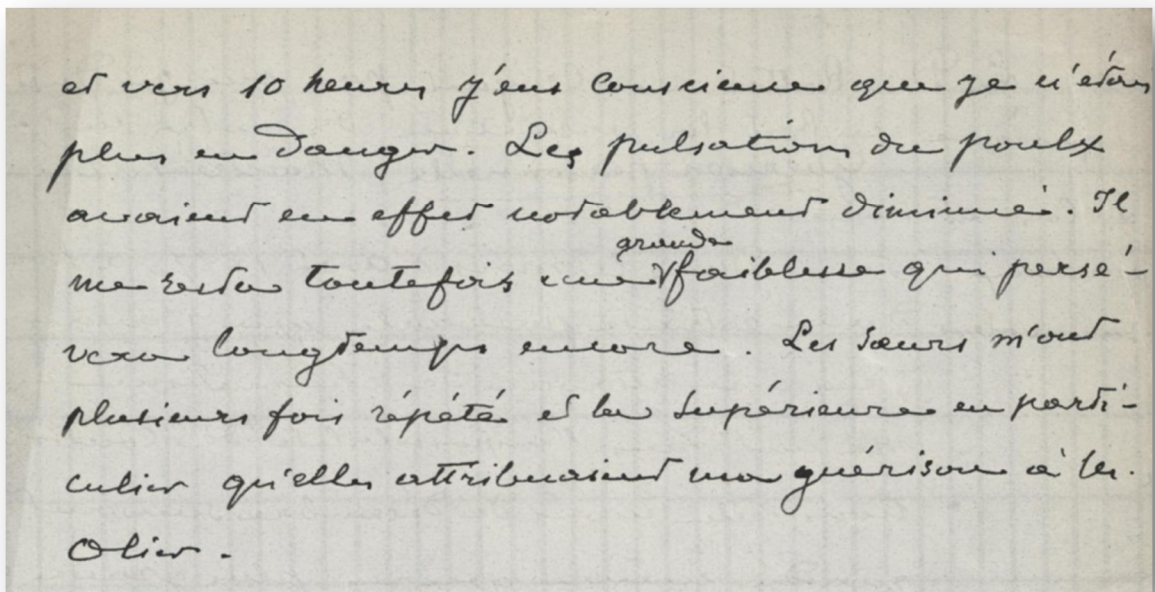 et vers 10 heures j'eus conscience que je n'étais
plus en danger. Les pulsations du poulx
avaient en effet notablement diminué. Il
grande
me resta toutefois une faiblesse qui persé-
vera longtemps encore. Les Sœurs m'ont
plusieurs fois répété et la Supérieure en parti-
culier qu'elles attribuaient ma guérison à
Olier.